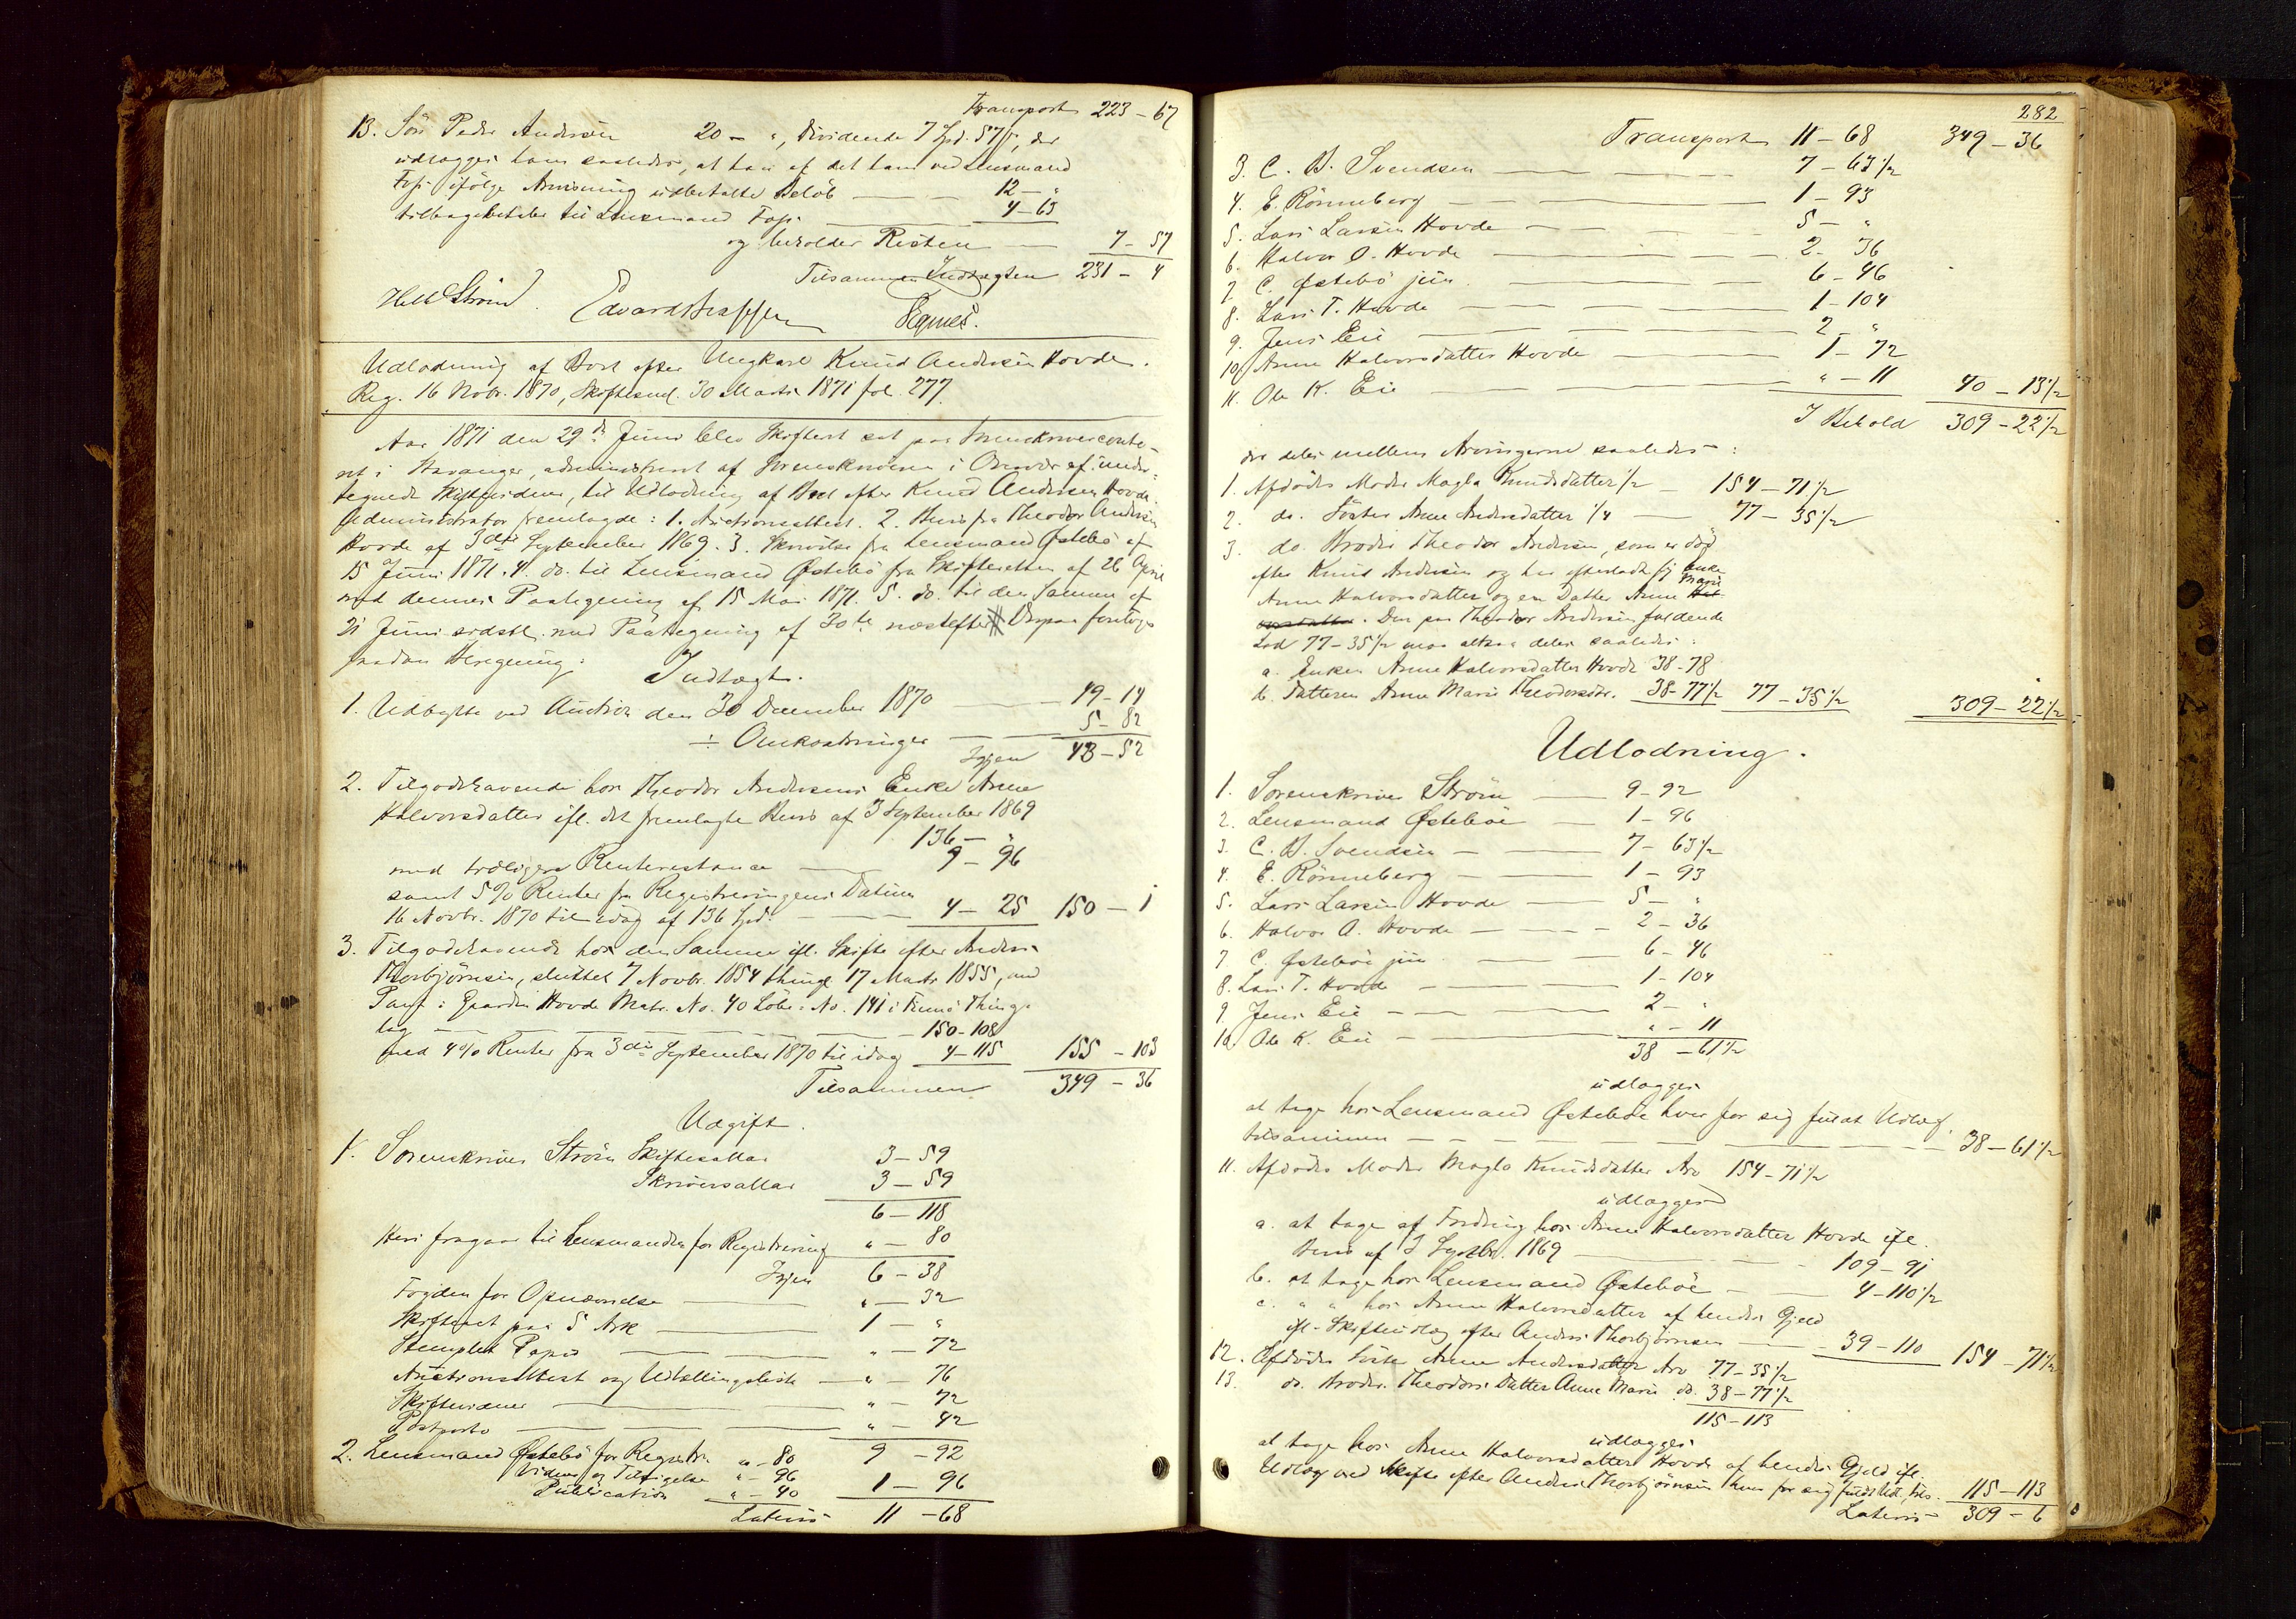 Transport 223 - 67
13. Søn Peder Andersen 20 - ", Dividende 7 Spd. 57 β, der
udlægges ham saaledes, at han af det ham ved Lensmand
ifølge Anvisning udbetalte Beløb 12 - "
tilbagebetaler til Lensmand 4 - 63
og beholder Resten 7 - 57
Tilsammen Indtægten 231 - 4
Strøm. Edvard
Udlodning af Boet efter Ungkarl Knud Andersen Hovde.
Reg. 16 Novbr. 1870, Skiftesml. 30 Marts 1871 fol. 277.
Aar 1871 den 29de Juni blev Skifteret sat paa Sorenskrivercontoi-
ret i Stavanger, administreret af Sorenskriveren i Overvær af under-
tegnede Skiftevidner, til Udlodning af Boet efter Knud Andersen Hovde.
Administrator fremlagde: 1. Auctionsattest. 2. Bevis fra Theodor Andersen
Hovde af 3die September 1869. 3. Skrivelse fra Lensmand Østebø af
15 Juni 1871. 4. do. til Lensmand Østebø fra Skifteretten af 26 April
med dennes Paategning af 15 Mai 1871. 5. do. til den Samme af
21 Juni sidstl. med Paategning af 30te næstefter Derpaa foretoges
saadan Beregning:
Indtægt.
1. Udbytte ved Auction den 30 December 1870 49 - 14
÷ Omkostninger 5 - 82
Igjen 43 - 52
2. Tilgodehavende hos Theodor Andersens Enke Anne
Halvorsdatter ifl. det fremlagte Bevis af 3 September 1869
136 - "
med Renterestance 9 - 96
samt 5% Renter fra Registreringens Datum
16 Novbr. 1870 til idag af 136 Spd. 4 - 25 150 - 1
3. Tilgodehavende hos den Samme ifl. Skifte efter Anders
Thorbjørnsen, sluttet 7 Novbr. 1854 thingl. 17 Marts 1855, med
Pant i Gaarden Hovde Matr. No. 40 Løbe-No. 141 i Thing-
lag 150 - 108
med 4% Renter fra 3die September 1870 til idag 4 - 115 155 - 103
Tilsammen 349 - 36
Udgift.
1. Sorenskriver Strøm Skiftesallar 3 - 59
Skriversallar 3 - 59
6 - 118
Heri fragaar til Lensmanden for Registrering " - 80
Igjen 6 - 38
Fogden for Opnævnelse " - 32
Skifteret paa 5 Ark 1 - "
Stemplet Papir " - 72
Auctionsattest og Udtællingsliste " - 76
Skiftevidner " - 72
Postporto " - 42
9 - 92
2. Lensmand Østebø for Registr. " - 80
Vidner og Tilsigelse " - 96
Publication " - 40 1 - 96
Lateris 11 - 68
282
Transport 11 - 68 349 - 36
3. C. B. Svendsen 7 - 63 1/2
4. E. Rönneberg 1 - 93
5. Lars Larsen Hovde 5 - "
6. Halvor O. Hovde 2 - 36
7. C. Østebø jun. 6 - 46
8. Lars T. Hovde 1 - 104
9. Jens Eie 2 - "
10. Anne Halvorsdatter Hovde 1 - 72
11. Ole K. Eie " - 11 40 - 13 1/2
I Behold 309 - 22 1/2
der deles mellem Arvingerne saaledes:
1. Afdødes Moder Magla Knudsdatter 1/2 154 - 71 1/2
2. do. Søster Anne Andersdatter 1/4 77 - 35 1/2
3. do. Broder Theodor Andersen, som er død
efter Knud Andersen og har efterladt sig Enke
Anne Halvorsdatter og en Datter Anne Marie
Den paa Theodor Andersen faldende
Lod 77 - 35 1/2 maa altsaa deles saaledes:
a. Enken Anne Halvorsdatter Hovde 38 - 78
b. Datteren Anne Marie Theodorsdr. 38 - 77 1/2 77 - 35 1/2 309 - 22 1/2
Udlodning.
1. Sorenskriver Strøm 9 - 92
2. Lensmand Østebøe 1 - 96
3. C. B. Svendsen 7 - 63 1/2
4. E. Rönneberg 1 - 93
5. Lars Larsen Hovde 5 - "
6. Halvor O. Hovde 2 - 36
7. C. Østebøe jun 6 - 46
8. Lars T. Hovde 1 - 104
9. Jens Eie 2 - "
10. Ole K. Eie " - 11
38 - 61 1/2
udlægges
at tage hos Lensmand Østebøe hver for sig fuldt Udlæg,
tilsammen 38 - 61 1/2
11. Afdødes Moder Magla Knudsdatter Arv 154 - 71 1/2
udlægges
a. at tage af Fordring hos Anne Halvorsdatter Hovde ifl.
Bevis af 3 Septbr. 1869 109 - 91
b. at tage hos Lensmand Østebøe 4 - 110 1/2
c. " " hos Anne Halvorsdatter af hendes Gjeld
ifl. Skifteudlæg efter Anders Thorbjørnsen 39 - 110 154 - 71 1/2
12. Afdødes Søster Anne Andersdatter Arv 77 - 35 1/2
13. do. Broder Theodors Datter Anne Marie do. 38 - 77 1/2
115 - 113
udlægges
at tage hos Anne Halvorsdatter Hovde af hendes Gjeld ifl.
Udlæg ved Skifte efter Anders Thorbjørnsen hver for sig fuldt Udl., tils. 115 - 113
Lateris 309 - 6